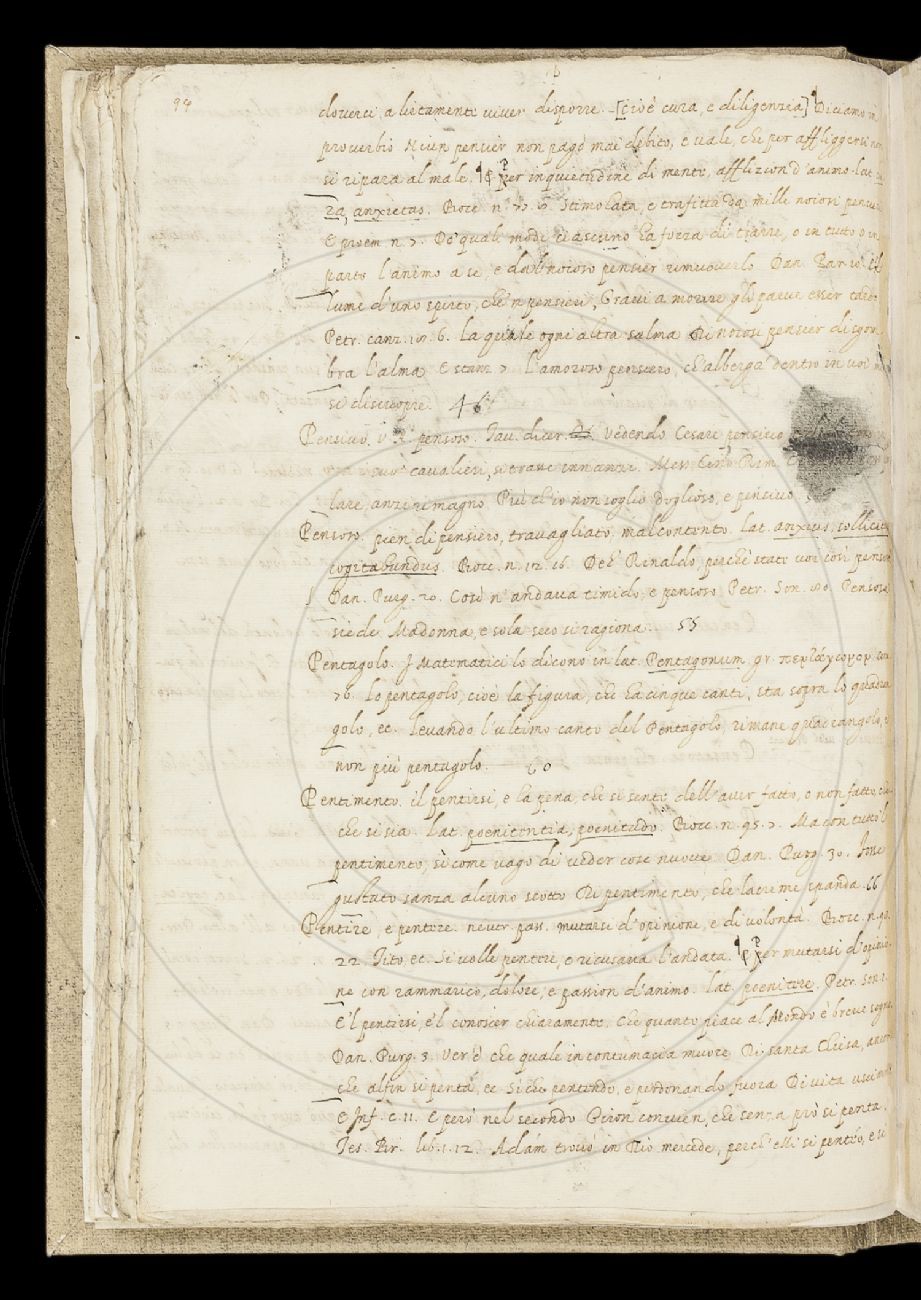 94
doverci, a lietamente viver disporre. [cioè cura, e diligenzia] Diciamo in
proverbio Niun pensier non pagò mai debito, e vale, che per affliggersi non
si ripara al male. ¶ Per inquietudine di mente, afflizion d'animo. lat.
ra, anxietas. Bocc. n. 77. Stimolata, e trafitta da mille noiosi pensie
E proem n. 7. De' quali modi ciascuno ha forza di trarre, o in tutto o in
parte l'animo a se, e dal noioso pensier rimuoverlo Dan. Par. 10. è'l
lume d'uno spirto, che'n pensieri, Gravi a morire gli parve esser tardo.
Petr. canz. 6. La quale ogni altra salma Di noiosi pensier disgom
bra l'alma E stanz 7 L'amoroso pensiero, ch'alberga dentro in voi
si discuopre. 46
Pensivo. V. A. pensoso. Tav. dicer. Vedendo Cesare pensivo
suoi cavalieri, si trasse innanzi. Mess. Cino Rim.
lare, anzi rimagno Più ch'io non soglio doglioso, e pensivo
Pensoso. pien di pensiero, travagliato, malcontento. Lat. anxius, sollicitus
cogitabundus. Bocc. n. 12. 16. Deh Rinaldo, perchè state voi così pensoso
Dan. Purg. 20. Così n'andava timido, e pensoso Petr. Son. Pensosa
siede Madonna, e sola seco si ragiona. 55
Pentagolo. I Matematici lo dicono in lat. Pentagonum gr. πεντάγωνον.
76. Lo pentagolo, cioè la figura, che ha cinque canti, sta sopra lo quadra
golo, ec. levando l'ultimo canto del Pentagolo, rimane quadrangolo, e
non più pentagolo. 60
Pentimento. il pentirsi, e la pena, che si sente dell'aver fatto, o non fatto,
che si sia. Lat. poenitentia, poenitudo. Bocc. n. 95. 7. Ma con tutto'l
pentimento, sì come vago di veder cose nuove Dan. Purg. 30. Fosse
gustato sanza alcuno scotto Di pentimento, che lacrime spanda. 66
Pentire, e pentere. neutr. pass. mutarsi d'opinione, e di volontà. Bocc. n. 98.
22. Tito, ec. Si volle pentere, e ricusava l'andata. ¶ Per mutarsi d'opinio
ne con rammarico, dolore, e passion d'animo. Lat. poenitere. Petr. Son. 1.
E'l pentirsi, e'l conoscer chiaramente. Che quanto piace al Mondo è breve sogno.
Dan. Purg. 3. Ver'è che quale in contumacia muore Di santa Chiesa, ancor
che alfin si penta, ec. Sì che pentendo, e perdonando fuora Di vita uscimmo
E Inf. c. 11. E però nel secondo Giron convien, che senza prò si penta.
Tes. Br. lib. 1. 12. Adám trovò in Dio mercede, perch'elli si pentéo, e si